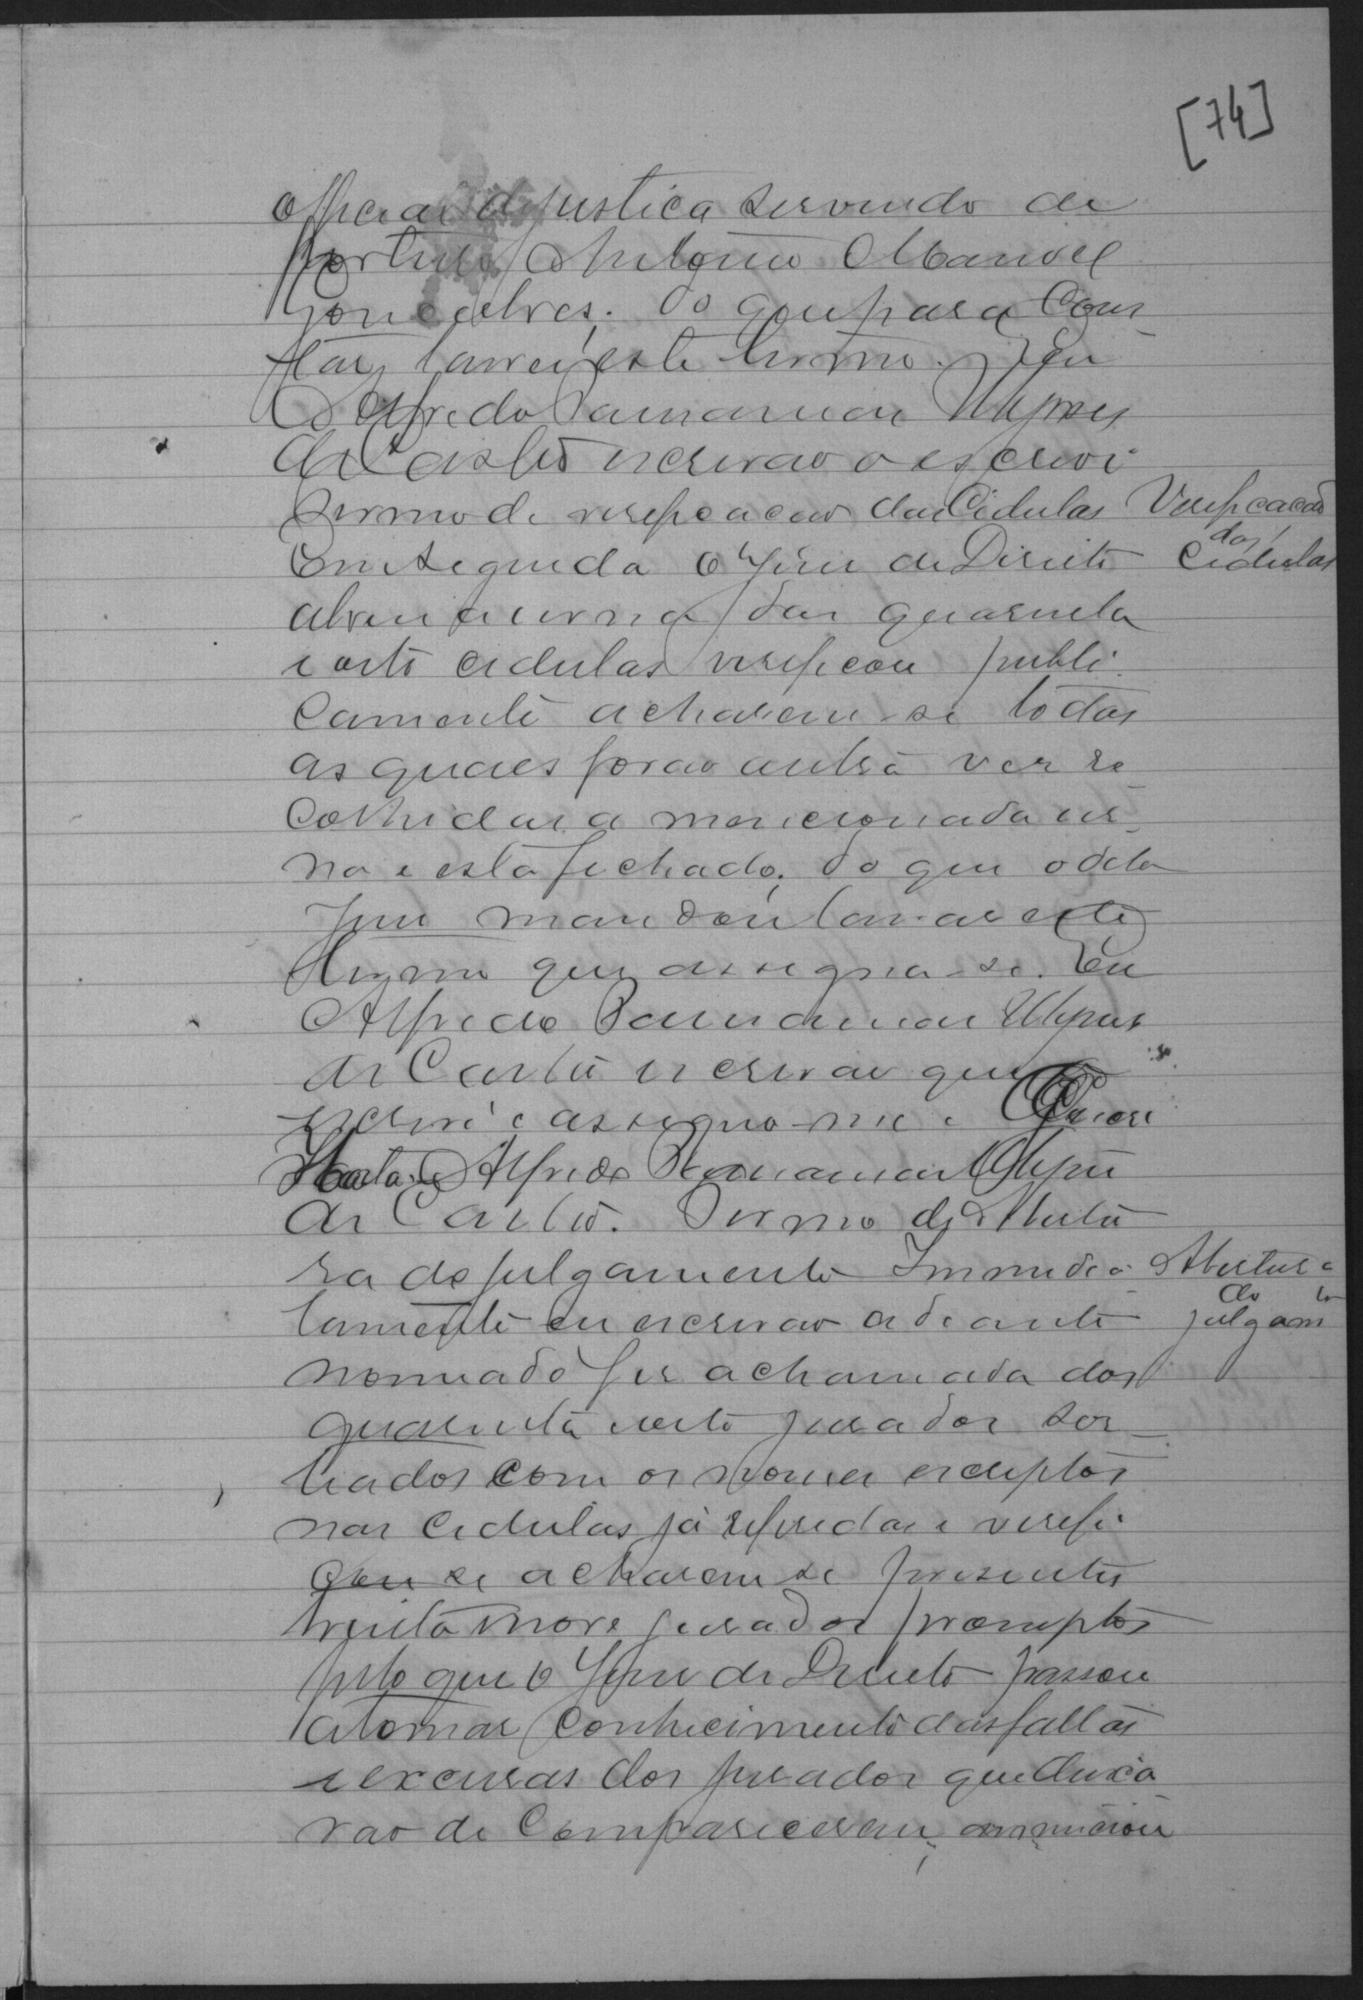 [74]
official de justica servindo de
porteiro Antonio Manoel
Goncalves; do que para cons-
tar, lavrei este termo. Eu
Alfredo
de Castro escrivao o escrevi
Termo de verificacao das Cedulas
Verificacaõ
das
Cedulas
Em seguida o Juiz de Direito
abrindo a urna das quarenta
e oito cedulas verificou publi-
camente acharem-se todas
as quaes forao outra vez re
colhidas a mencionada ur-
na e esta fechada; do que o dito
Juiz mandou lavrar este
termo que assigna-se. Eu
Alfredo
de Castro escrivao que
escrevi e assigno-me.
Alfredo
de Castro. Termo de Abertu
ra do julgamento Immedia
Abertura
do
julgamto
tamente eu escrivao adiante
nomeado fiz a chamada dos
quarenta e oito jurados sor-
teados com os nomes escriptos
nas cedulas já referidas e verifi
cou se acharem se presentes
trinta e nove jurados promptos
pelo que o Juiz de Direito passou
a tomar conhecimento das faltas
e excusas dos jurados que deixa
rao de comparecerem;